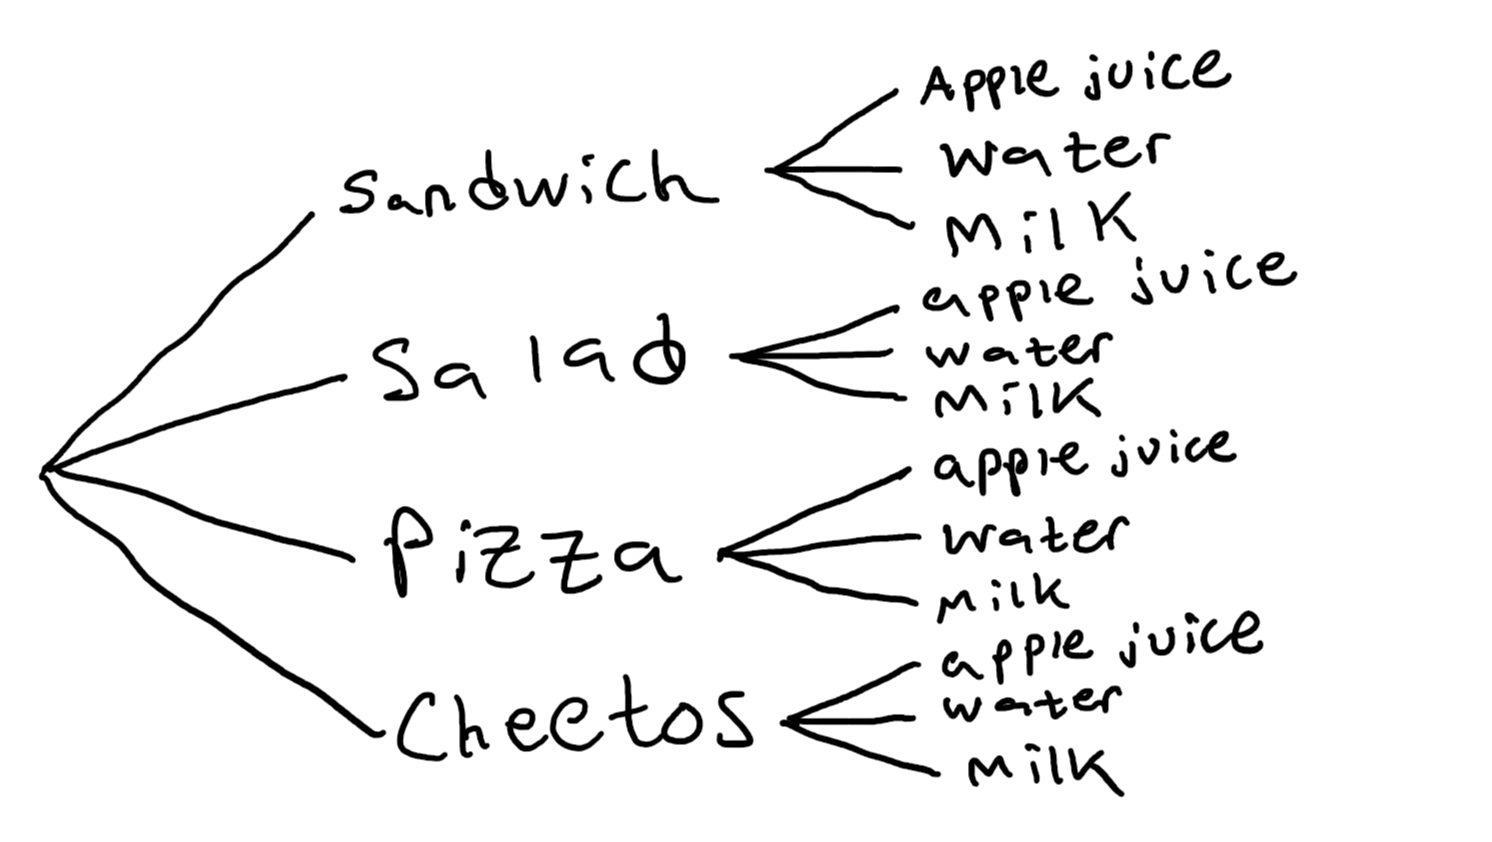 Sandwich
Apple juice
water
Milk
Salad
apple juice
water
Milk
Pizza
apple juice
water
Milk
Cheetos
apple juice
water
Milk